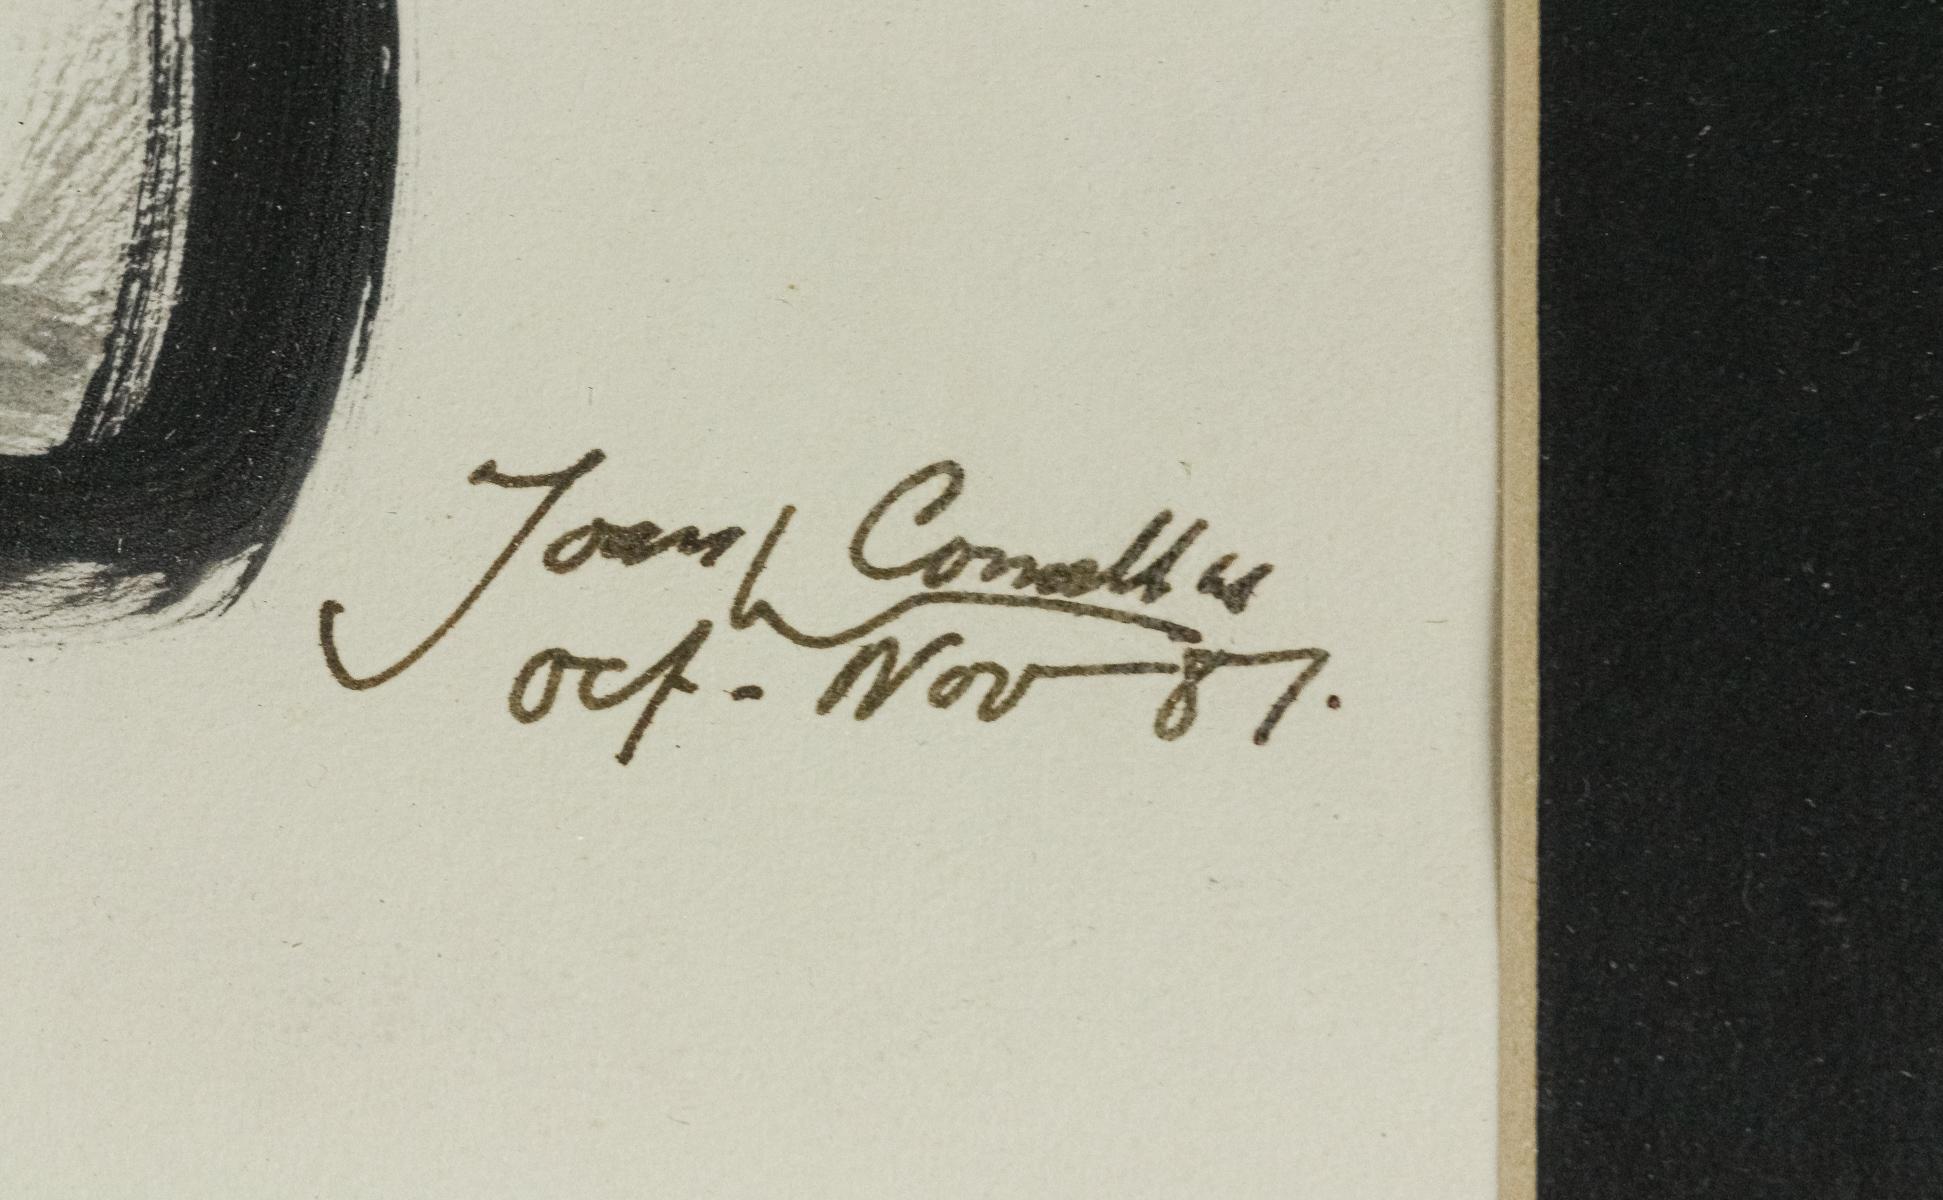 Joan Cornellas
Oct - Nov 87.